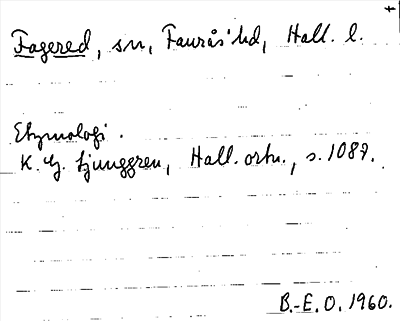 Fagered, sn, Faurås hd, Hall. l.
Etymologi.
K. G. Ljunggren, Hall. ortn., s. 1087.
B.-E. O. 1960.